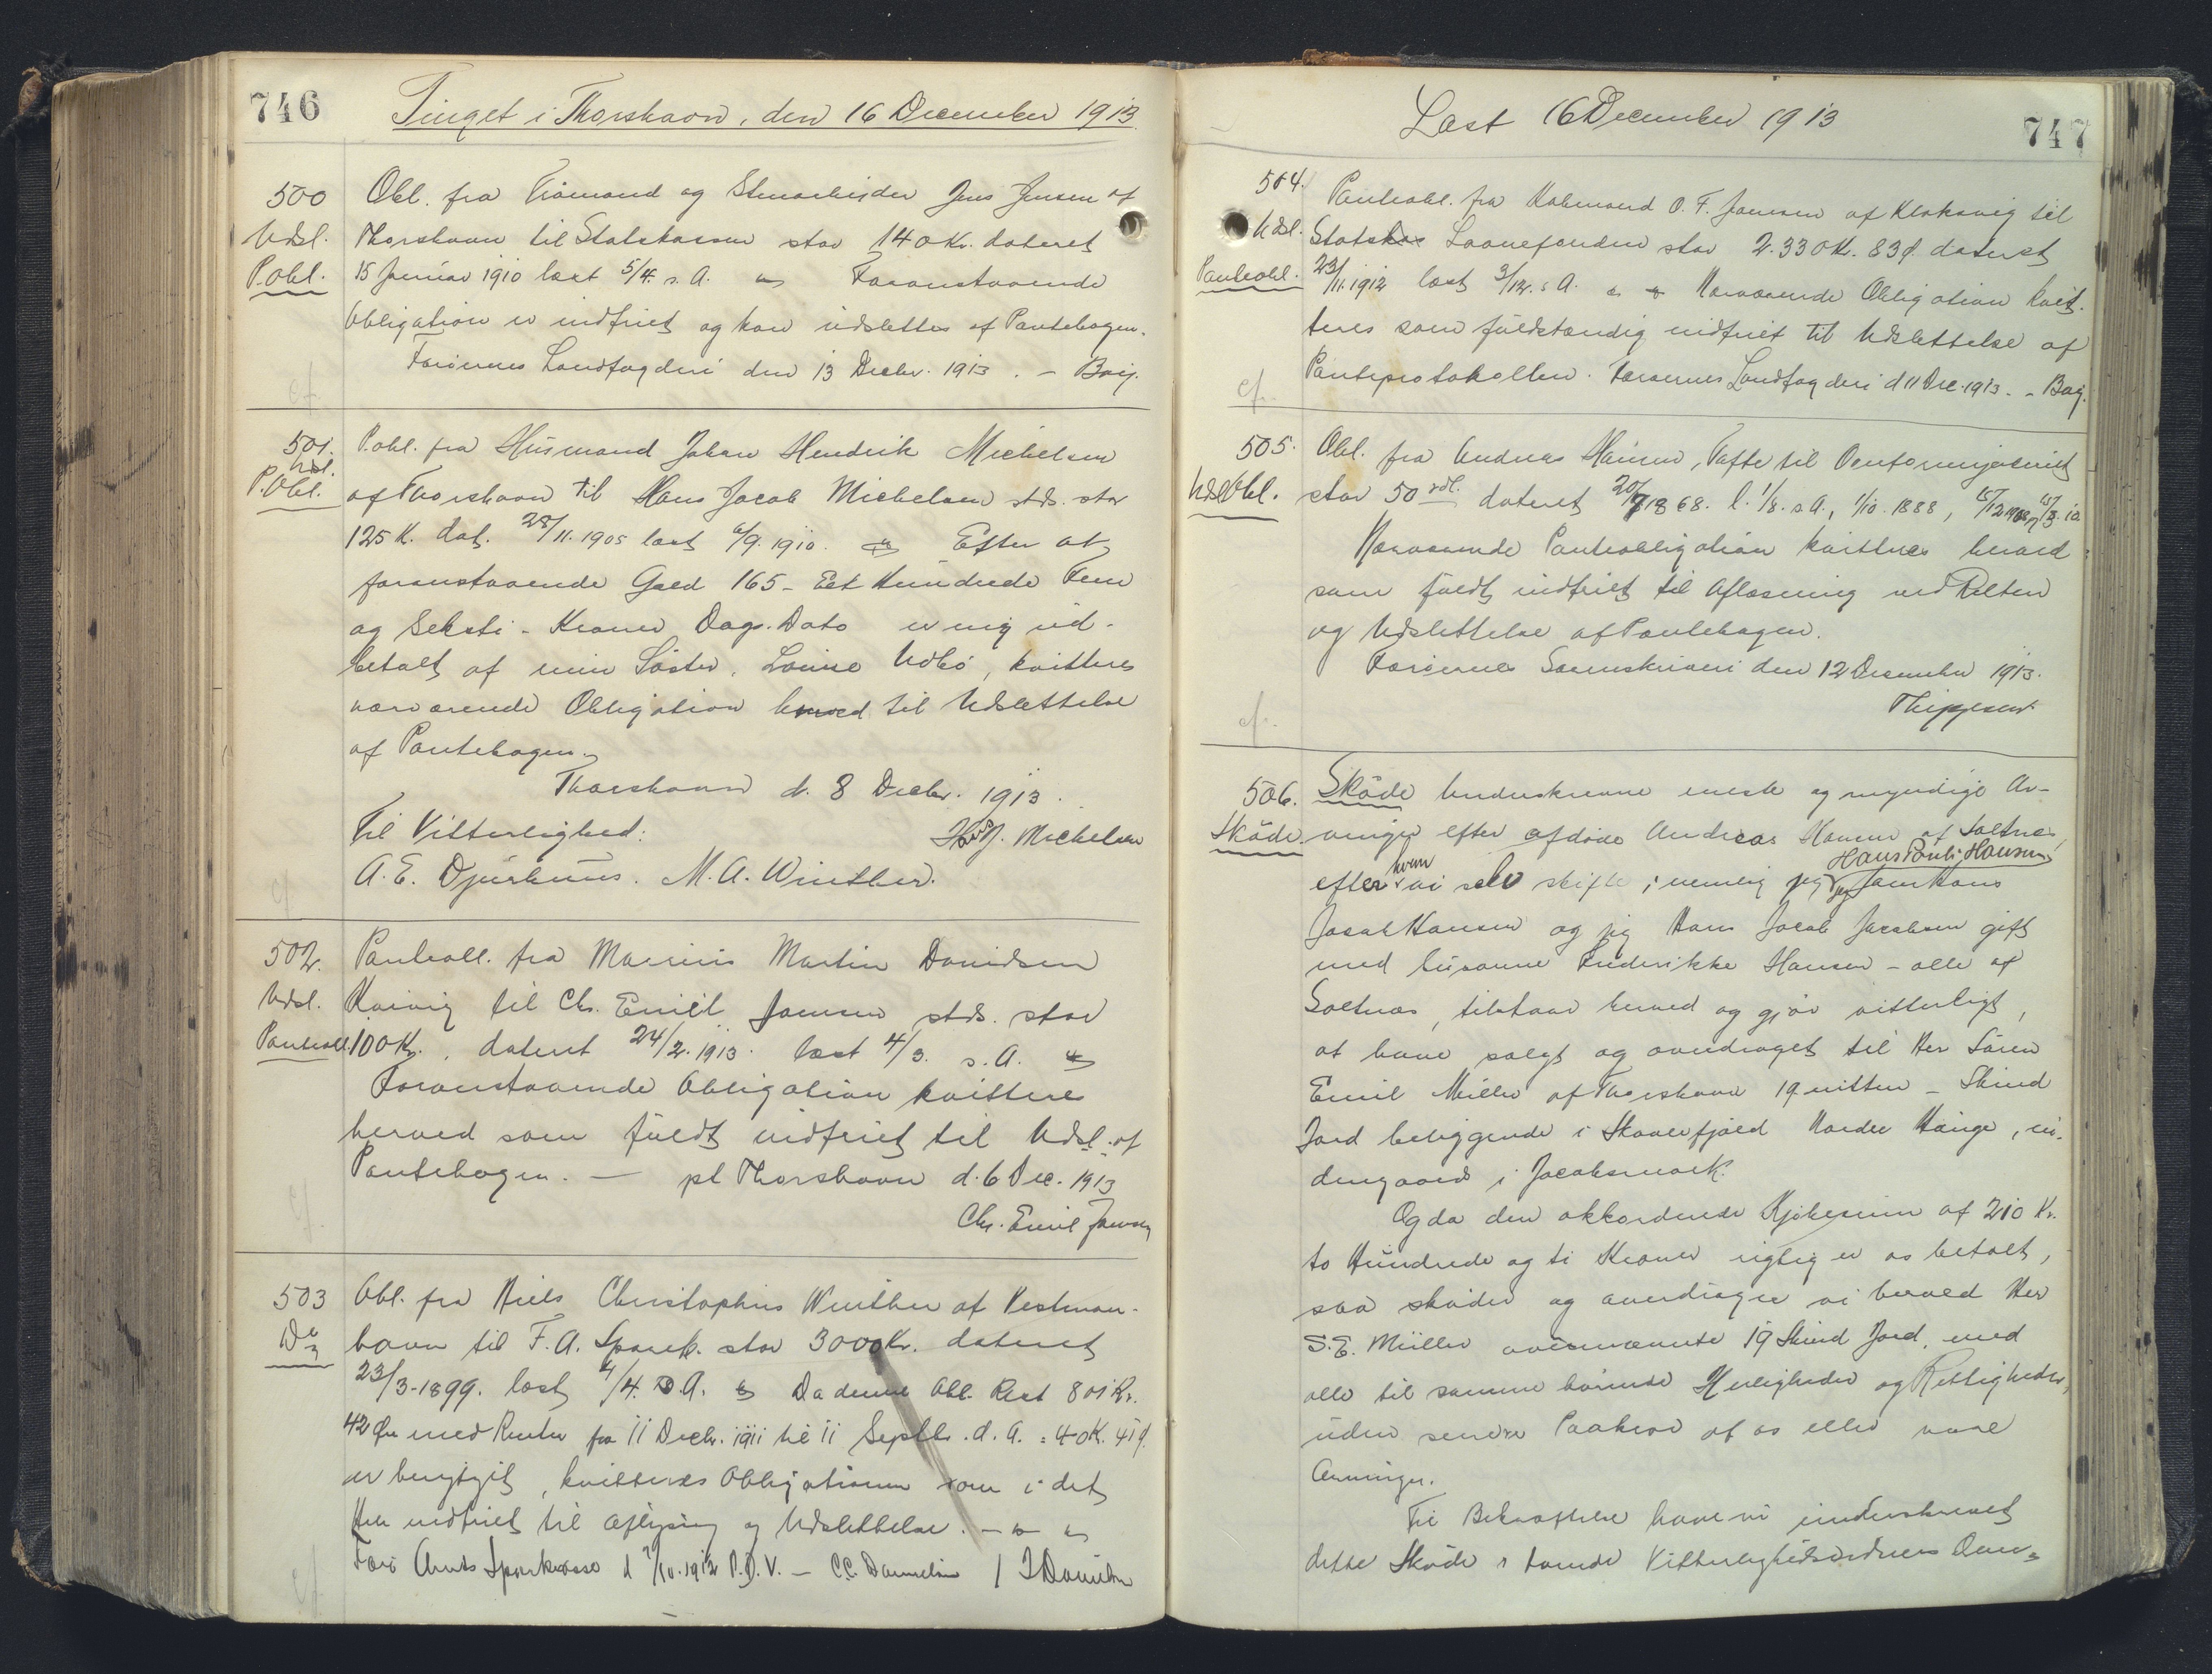 746
Tinget i Thorshavn, den 16 December 1913
500
Udsl.
P.obl.
Obl. fra Tiömand og Stenarbejder Jens Jensen af
Thorshavn til Statskassen stor 140 Kr. dateret
15 Januar 1910 læst 5/4. s. A. Foranstaaende
Obligation er indfriet og kan udslettes af Pantebogen.
Færøernes Landfogderi den 13 Decbr. 1913. - Bærj.
cf.
501.
Udsl.
P.Obl.
P.obl. fra Husmand Johan Hendrik Michelsen
af Thorshavn til Hans Jacob Michelsen stds. stor
125 K. dat. 28/11. 1905 læst 6/9. 1910. Efter at
foranstaaende Gæld 165 - Eet Hundrede Fem
og Seksti - Kroner Dags. Dato er mig ud-
betalt af min Söster, Louise Udbö, kvitteres
nærværende Obligation herved til Udslettelse
af Pantebogen.
Thorshavn d. 8 Decbr. 1913.
Til Vitterlighed: Hans J. Michelsen
A. E. Djurhuus. M. A. Winther.
cf
502.
Udsl.
Panteobl.
Panteobl. fra Marius Martin Davidsen
Kvivig til Chr. Emil Jensen stds. stor
100 Kr., dateret 24/2. 1913. læst 4/3. s. A.
Foranstaaende Obligation kvitteres
herved som fuldt indfriet til Udsl. af
Pantebogen. — pt Thorshavn d. 6 Dec. 1913
Chr. Emil Jensen
cf.
503
Do
Obl. fra Niels Christophus Winther af Vestman-
havn til F. A. Spark. stor 3000 Kr. dateret
23/3-1899. læst 4/4. s. A. Da denne Obl. Rest 801 Kr.
42 Øre med Renter fra 11 Decbr. 1911 til 11 Septbr. d. A. = 40 K. 41 ø.
er berigtiget, kvitteres Obligationen som i det
Hele indfriet til Aflysning og Udslettelse. -
Færø Amts Sparekasse d 7/10. 1912 P. D. V. — C.C. Danielsen / J Danielsen
cf.
Læst 16 December 1913
747
504.
Udsl.
Panteobl.
Panteobl. fra Købmand O. F. Joensen af Klaksvig til
Stats Laanefonden stor 2.330 K. 83 ø. dateret
23/11. 1912 læst 3/12. s. A. Nærværende Obligation kvit-
teres som fuldstændig indfriet til Udslettelse af
Panteprotokollen. Færøernes Landfogderi d 11 Dec. 1913. - Bærj.
cf.
505.
Udsl Obl.
Obl. fra Andreas Hansen, Tofte til Overformynderiet
stor 50 rdl. dateret 20/7 1868. l. 1/8. s. A., 1/10. 1888,
Nærværende Panteobligation kvitteres herved
som fuldt indfriet til Aflæsning ved Retten
og Udslettelse af Pantebogen.
Færøernes Sorenskriveri den 12 December 1913.
cf.
506.
Sköde.
Sköde Underskrevne eneste og myndige Ar-
vinger efter afdøde Andreas Hansen af Saltnæs,
efter hvem vi selv skifte; nemlig jeg Hans Pauli Hansen, jeg
Jacob Hansen og jeg Hans Jacob Jacobsen gift
med Susanne Frederikke Hansen - alle af
Saltnæs, tilstaar herved og gjör vitterligt,
at have solgt og overdraget til Hr Sören
Emil Müller af Thorshavn 19 nitten - Skind
Jord beliggende i Skaalefjord Norder Hauge, in-
dengaards i Jacobsmark.
Og da den akkorderede Kjöbesum af 210 Kr.
to Hundrede og ti Kroner rigtig er os betalt,
saa sköder og overdrager vi herved Hr
S. E. Müller ovennævnte 19 Skind Jord, med
alle til samme hörende Herligheder og Rettigheder,
uden senere Paakrav af os eller vore
Arvinger.
Til Bekræftelse have vi underskrevet
dette Sköde i tvende Vitterlighedsvidners Over-